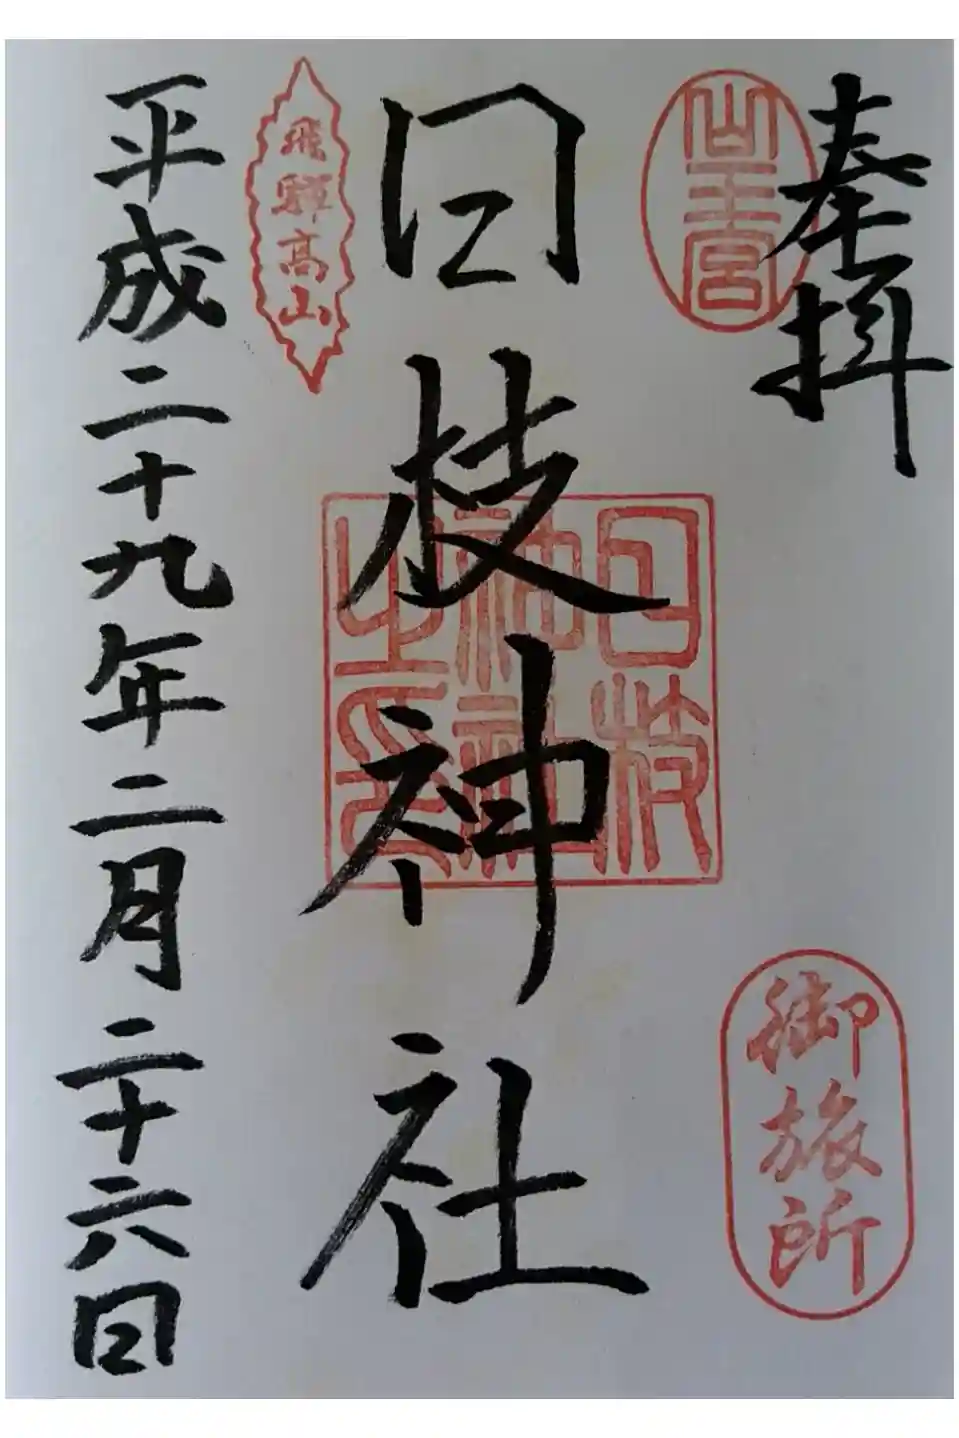 奉拝
山王宮
御旅所
日枝神社
日枝神社之印
飛騨高山
平成二十九年二月二十六日